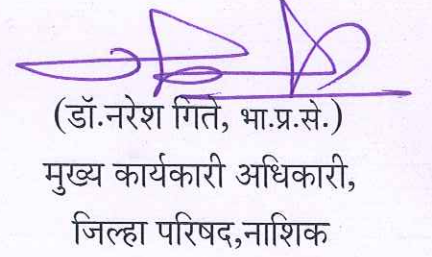 (डॉ.नरेश गिते, भा.प्र.से.)
मुख्य कार्यकारी अधिकारी,
जिल्हा परिषद,नाशिक